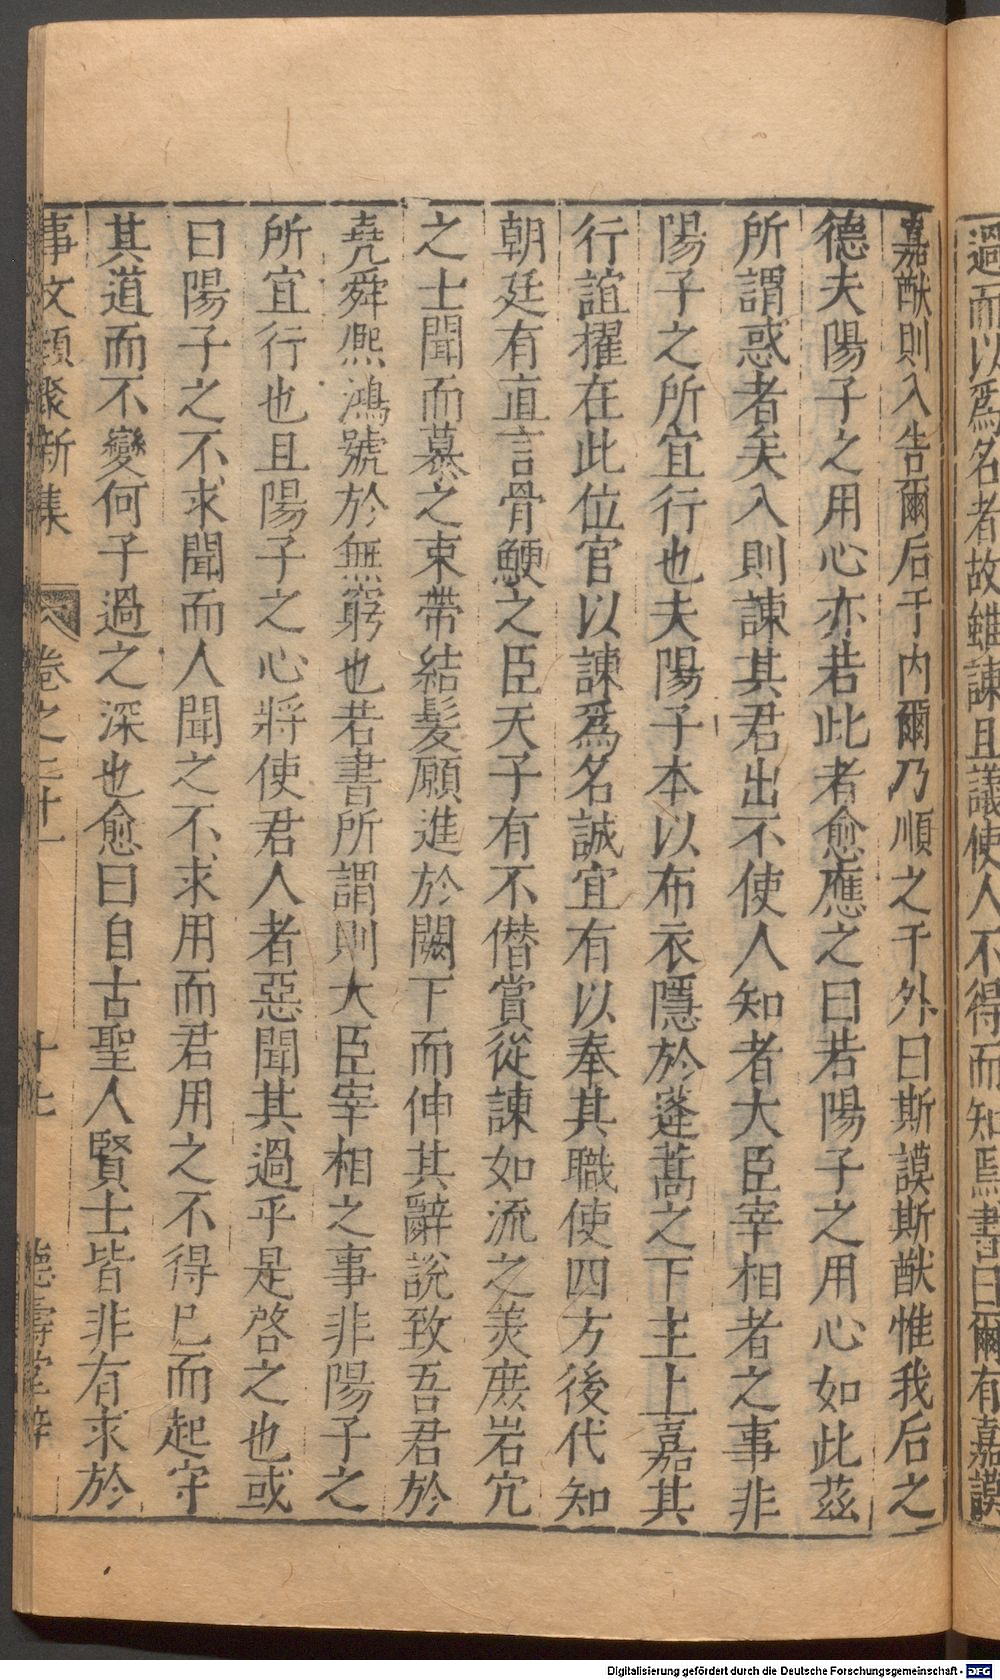 過而以爲名者故雖諫且議使人不得而知焉書曰爾有嘉謨
嘉猷則入告爾后于內爾乃順之于外曰斯謨斯猷惟我后之
德夫陽子之用心亦若此者愈應之曰若陽子之用心如此茲
所謂惑者矣入則諫其君出不使人知者大臣宰相者之事非
陽子之所宜行也夫陽子本以布衣隱於蓬蒿之下主上嘉其
行誼擢在此位官以諫爲名誠宜有以奉其職使四方後代知
朝廷有直言骨鯁之臣天子有不僭賞從諫如流之美庶岩穴
之士聞而慕之束帶結髮願進於闕下而伸其辭說致吾君於
堯舜熈鴻號於無窮也若書所謂則大臣宰相之事非陽子之
所宜行也且陽子之心將使君人者惡聞其過乎是啓之也或
曰陽子之不求聞而人聞之不求用而君用之不得已而起守
其道而不變何子過之深也愈曰自古聖人賢士皆非有求於
事文類聚新集 卷之二十一 十七 德壽堂梓
Digitalisierung gefördert durch die Deutsche Forschungsgemeinschaft - DFG